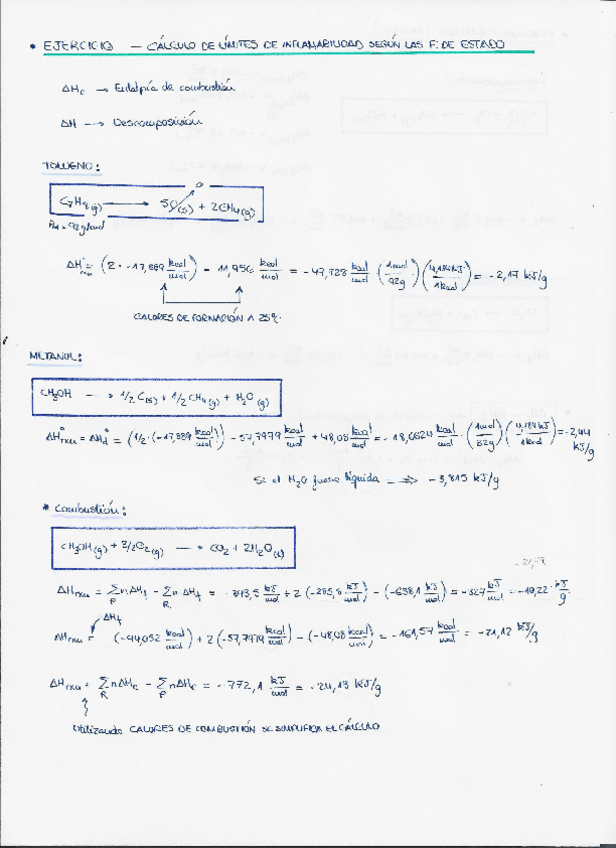 • EJERCICIO — CÁLCULO DE LÍMITES DE INFLAMABILIDAD SEGÚN LAS F. DE ESTADO
ΔHc → Entalpía de combustión
ΔH --→ Descomposición
TOLUENO:
C7H8(g) → 5C(s) + 2CH4(g)
Pm = 92g/mol
ΔH°rxn = (2 · -17,889 kcal/mol) - 11,956 kcal/mol = -47,728 kcal/mol · (1mol/92g)(4,184kJ/1kcal) = -2,17 kJ/g
CALORES DE FORMACIÓN A 25º.
METANOL:
CH3OH → 1/2 C(s) + 1/2 CH4(g) + H2O(g)
ΔH°rxn = ΔHd° = (1/2·(-17,889 kcal/mol)) - 57,7979 kcal/mol + 48,08 kcal/mol = -18,6624 kcal/mol · (1mol/32g)(4,184kJ/1kcal) = -2,44 kJ/g
Si el H2O fuese líquida → -3,815 kJ/g
* Combustión:
CH3OH(g) + 3/2O2(g) → CO2 + 2H2O(l)
ΔHrxn = Σ nΔHf - Σ nΔHf = -393,5 kJ/mol + 2(-285,8 kJ/mol) - (-638,1 kJ/mol) = -327 kJ/mol = -10,22 kJ/g
P R
ΔHf
ΔHrxn = (-94,052 kcal/mol) + 2(-57,7979 kcal/mol) - (-48,08 kcal/mol) = -161,57 kcal/mol = -21,12 kJ/g
ΔHrxn = Σ nΔHc - Σ nΔHc = -772,1 kJ/mol = -24,13 kJ/g
R P
Utilizando CALORES DE COMBUSTIÓN SE SIMPLIFICA EL CÁLCULO